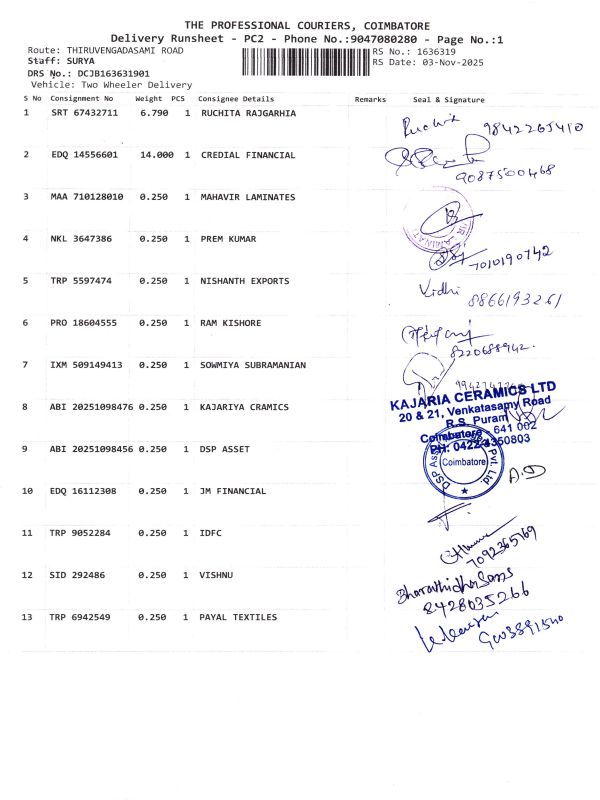 THE PROFESSIONAL COURIERS, COIMBATORE
Delivery Runsheet - PC2 - Phone No.:9047080280 - Page No.:1
Route: THIRUVENGADASAMI ROAD
RS No.: 1636319
Staff: SURYA
RS Date: 03-Nov-2025
DRS No.: DCJB163631901
Vehicle: Two Wheeler Delivery
S No Consignment No Weight PCS Consignee Details Remarks Seal & Signature
1 SRT 67432711 6.790 1 RUCHITA RAJGARHIA
9842265410
2 EDQ 14556601 14.000 1 CREDIAL FINANCIAL
9087500468
3 MAA 710128010 0.250 1 MAHAVIR LAMINATES
4 NKL 3647386 0.250 1 PREM KUMAR
7010190742
5 TRP 5597474 0.250 1 NISHANTH EXPORTS
Vidhi 8866193261
6 PRO 18604555 0.250 1 RAM KISHORE
8220688942.
7 IXM 509149413 0.250 1 SOWMIYA SUBRAMANIAN
8 ABI 20251098476 0.250 1 KAJARIYA CRAMICS
KAJARIA CERAMICS LTD
20 & 21, Venkatasamy Road
R.S. Puram
Coimbatore - 641 002
PH: 0422-4350803
9 ABI 20251098456 0.250 1 DSP ASSET
DSP Asset Pvt. Ltd.
Coimbatore
A.D
10 EDQ 16112308 0.250 1 JM FINANCIAL
11 TRP 9052284 0.250 1 IDFC
7092365769
12 SID 292486 0.250 1 VISHNU
8428035266
13 TRP 6942549 0.250 1 PAYAL TEXTILES